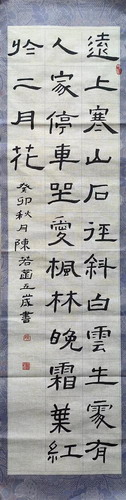 遠上寒山石徑斜白雲生處有
人家停車坐愛楓林晚霜葉紅
於二月花
癸卯秋月陳若五歲書